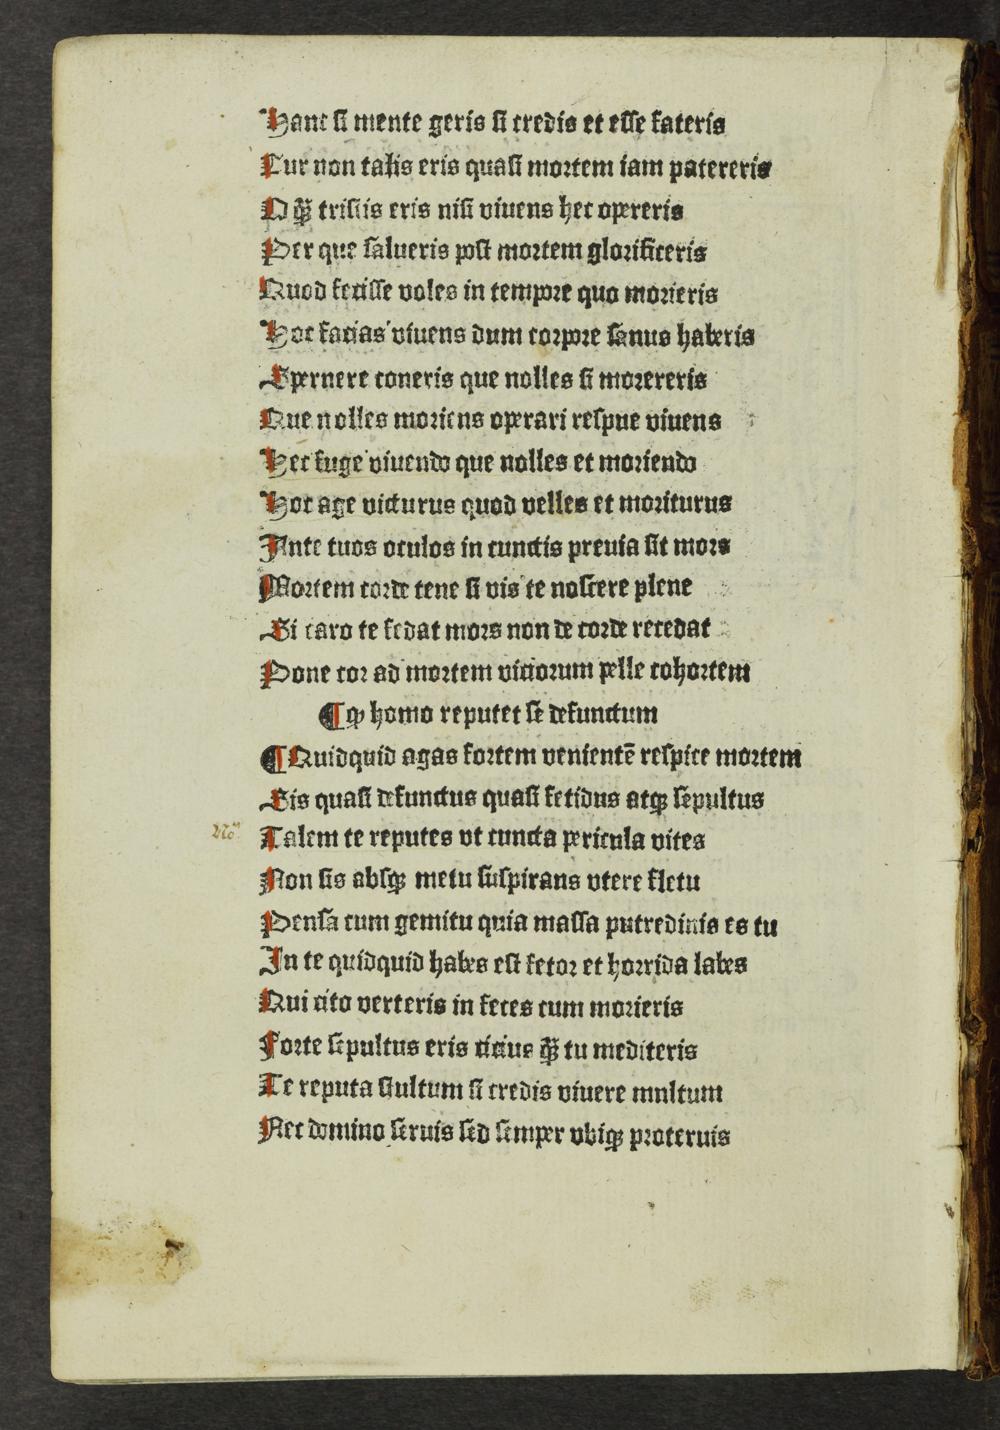 Hanc si mente geris si credis et esse fateris
Cur non talis eris quasi mortem iam patereris
O qȝ tristis eris nisi viuens hec opereris
Per que salueris post mortem glorificeris
Quod fecisse voles in tempore quo morieris
Hoc facias viuens dum corpore sanus haberis
Spernere coneris que nolles si morereris
Que nolles moriens operari respue viuens
Hec fuge viuendo que nolles et moriendo
Hoc age victurus quod velles et moriturus
Ante tuos oculos in cunctis preuia sit mors
Mortem corde tene si vis te noscere plene
Si caro te fedat mors non de corde recedat
Pone cor ad mortem viciorum pelle cohortem
¶ ꝙ homo reputet se defunctum
¶ Quidquid agas fortem venientē respice mortem
Sis quasi defunctus quasi fetidus atqȝ sepultus
No
Talem te reputes vt cuncta pericula vites
Non sis absqȝ metu suspirans vtere fletu
Pensa cum gemitu quia massa putredinis es tu
In te quidquid habes est fetor et horrida labes
Qui cito verteris in feces cum morieris
Forte sepultus eris cicius qȝ tu mediteris
Te reputa stultum si credis viuere mnltum
Nec domino seruis sed semper vbiqȝ proteruis